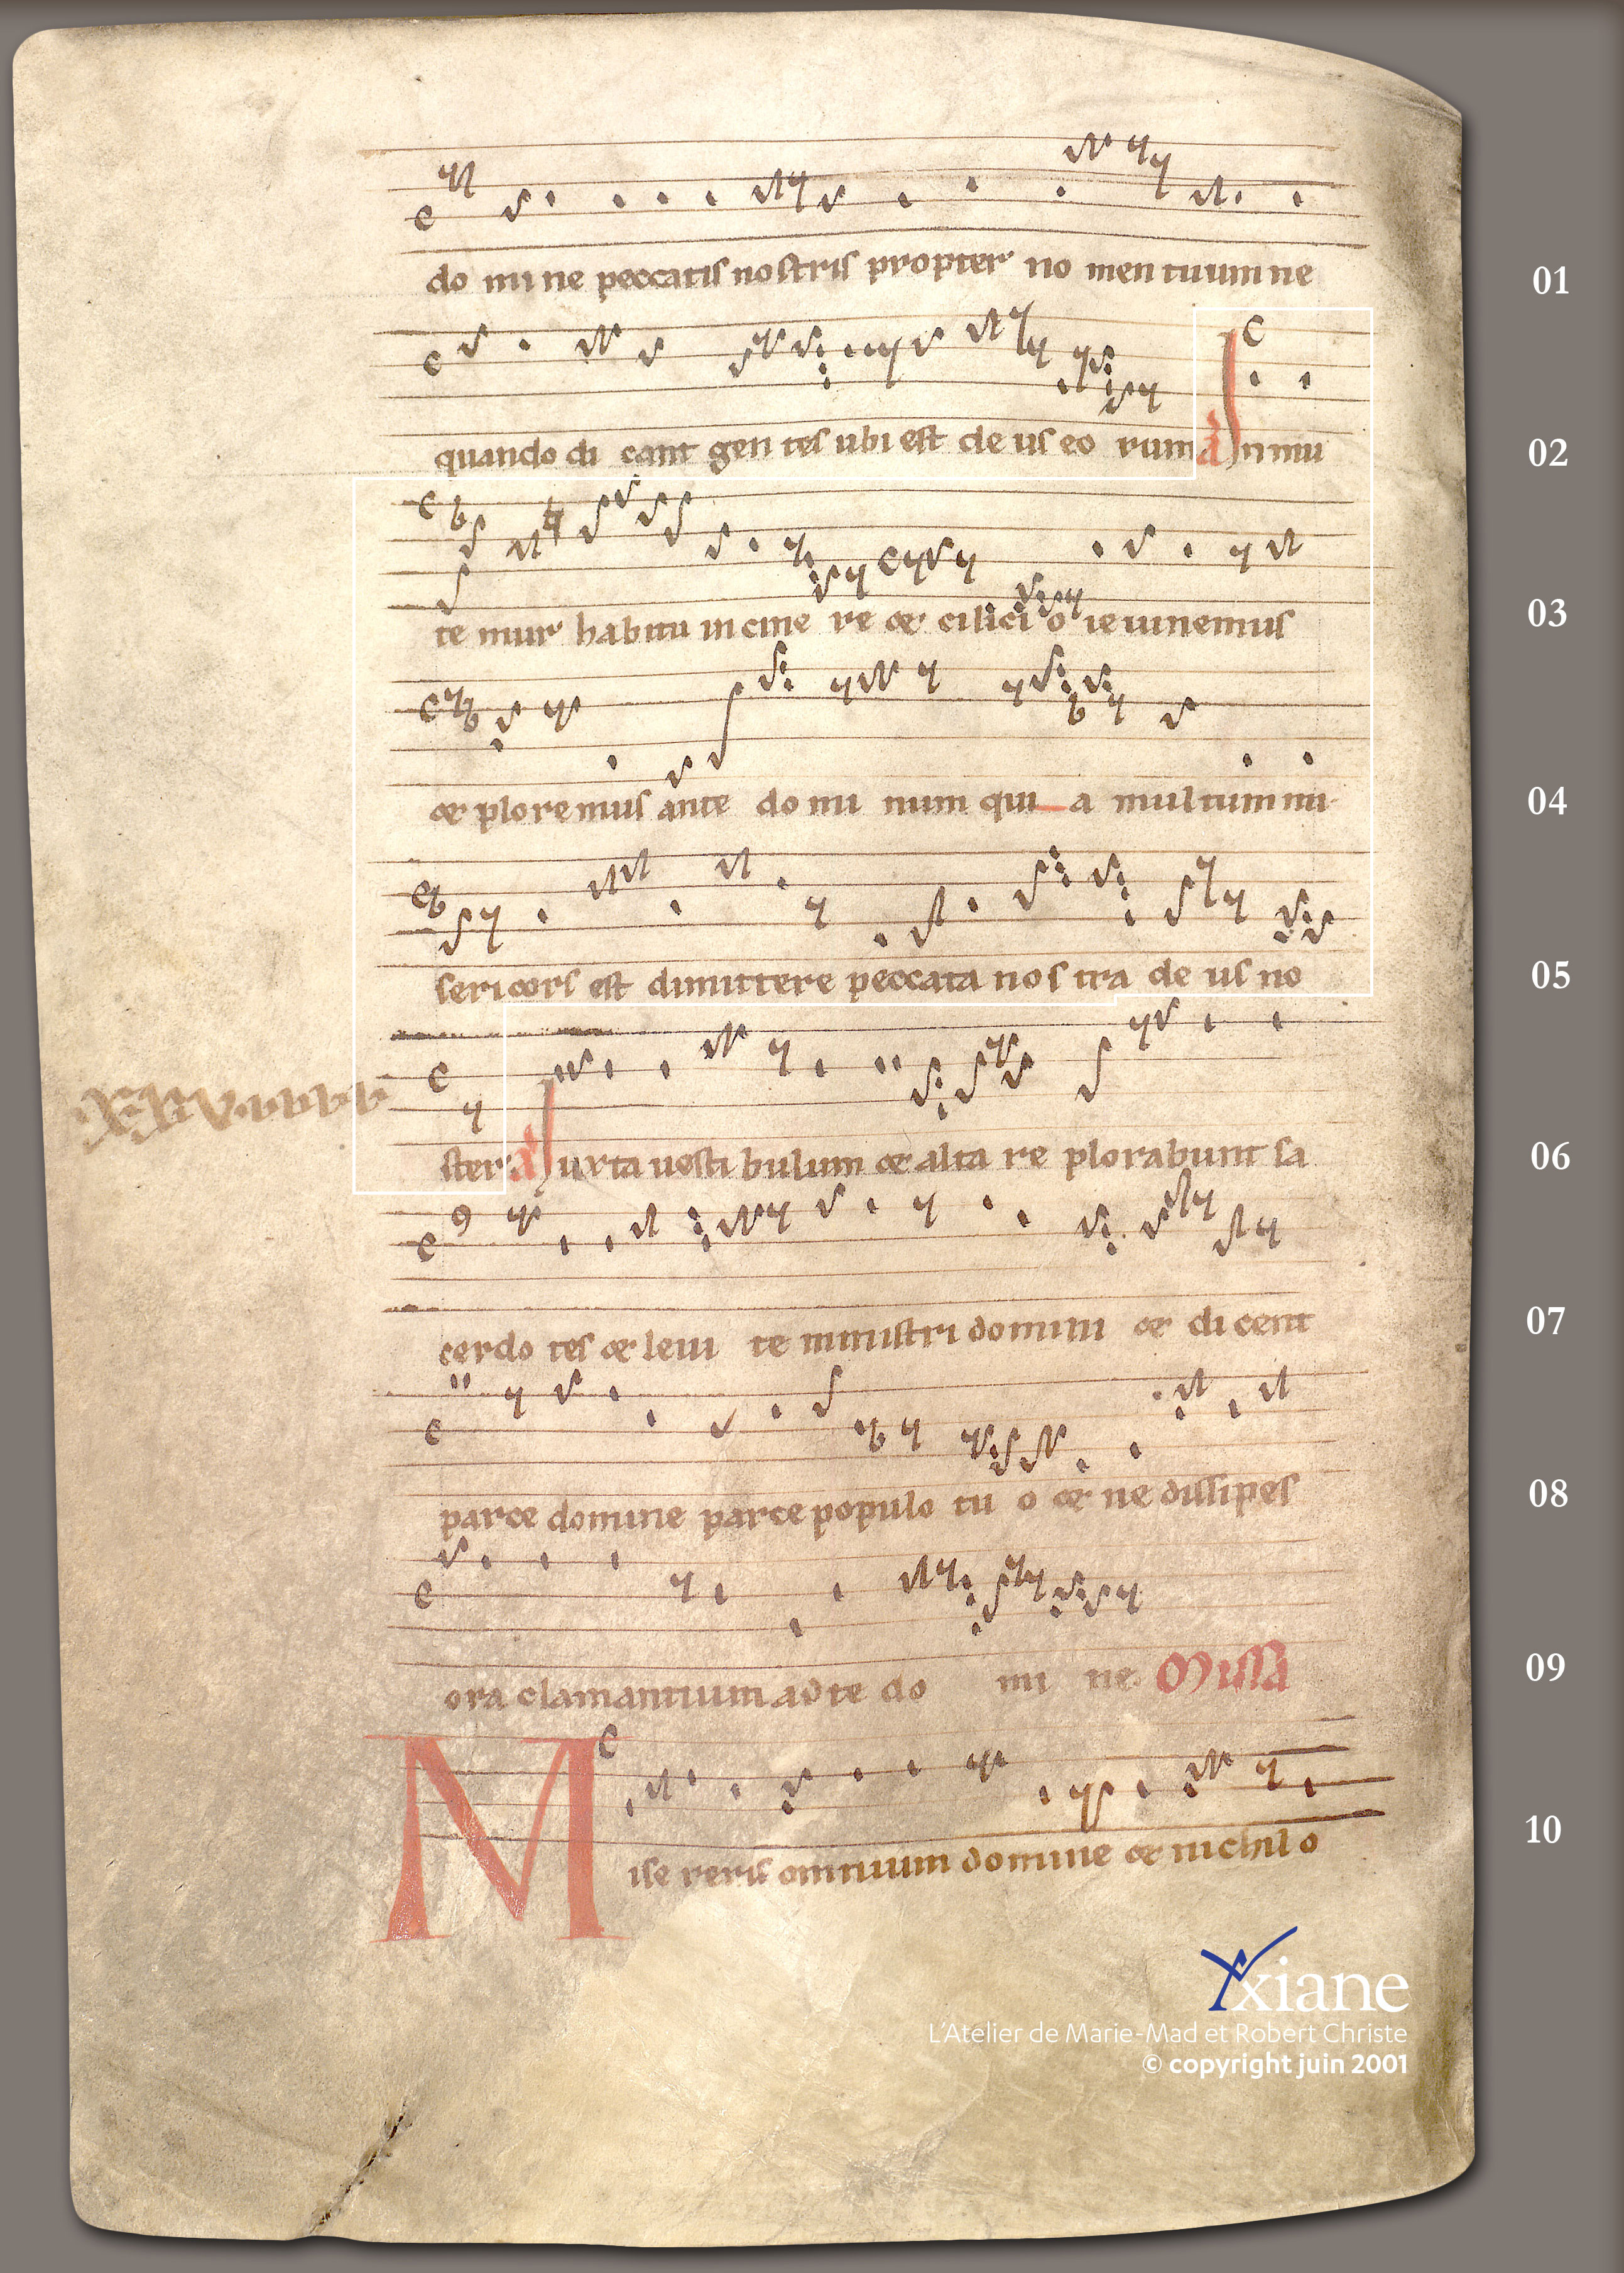 do mi ne peccatis nostris propter no men tuum ne
01
quando di cant gen tes ubi est de us eo rum a Inmu
02
te mur habitu in cine re & cilici o ieiunemus
03
& ploremus ante do mi num qui a multum mi
04
sericors est dimittere peccata nos tra de us no
05
ster a Iuxta uesti bulum & alta re plorabunt sa
06
cerdo tes & leui te ministri domini & dicent
07
parce domine parce populo tu o & ne dissipes
08
ora clamantium ad te do mi ne. Missa
09
Mise reris omnium domine & nichil o
10
Axiane
L'Atelier de Marie-Mad et Robert Christe
© copyright juin 2001